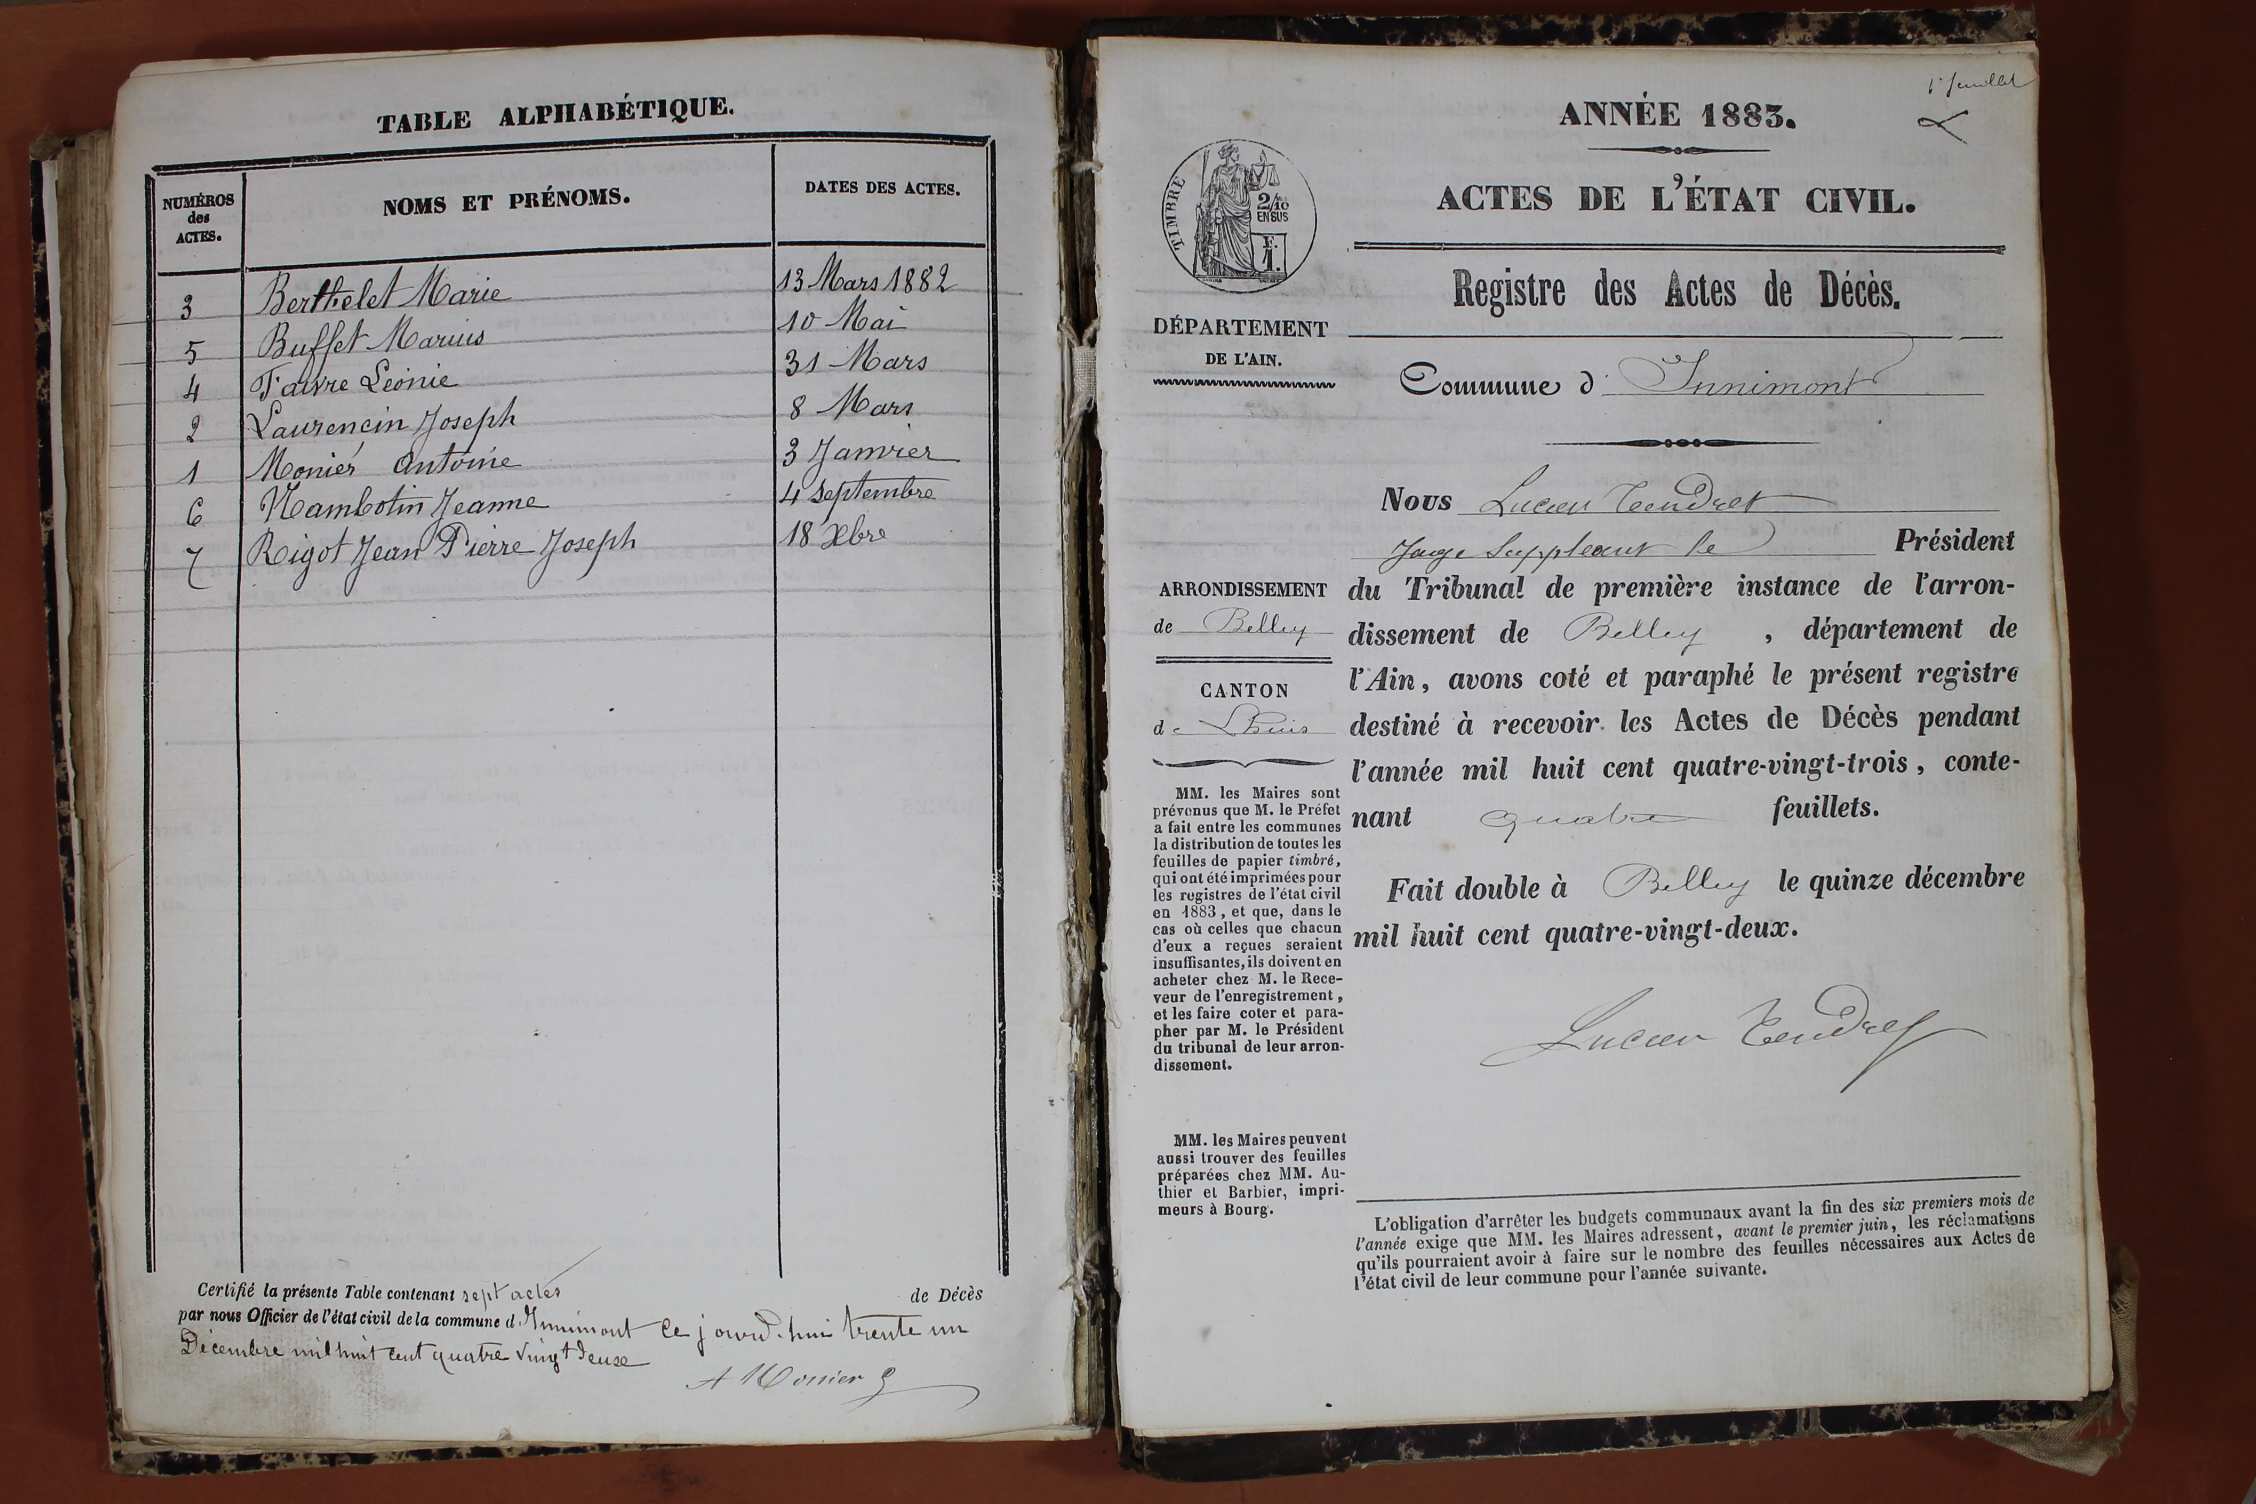 TABLE ALPHABÉTIQUE.
NUMÉROS
des
ACTES.
NOMS ET PRÉNOMS.
DATES DES ACTES.
3 Berthelet Marie 13 Mars 1882
5 Buffet Marius 10 Mai
4 Faivre Léonie 31 Mars
2 Laurencin Joseph 8 Mars
1 Monier Antoine 3 Janvier
6 Nambotin Jeanne 4 septembre
7 Rigot Jean Pierre Joseph 18 Xbre
Certifié la présente Table contenant sept actes de Décès
par nous Officier de l'état civil de la commune d'Innimont ce jourd'hui trente un
Décembre mil huit cent quatre vingt deuse
A Monier
1er feuillet
ANNÉE 1883.
ACTES DE L'ÉTAT CIVIL.
TIMBRE
2/10
EN SUS
F.
1.
Registre des Actes de Décès.
DÉPARTEMENT
DE L'AIN.
Commune d'Innimont
Nous Lucien Tendret
Juge Suppleant le Président
du Tribunal de première instance de l'arron-
dissement de Belley, département de
l'Ain, avons coté et paraphé le présent registre
destiné à recevoir les Actes de Décès pendant
l'année mil huit cent quatre-vingt-trois, conte-
nant quatre feuillets.
Fait double à Belley le quinze décembre
mil huit cent quatre-vingt-deux.
Lucien Tendret
ARRONDISSEMENT
de Belley
CANTON
de Lhuis
MM. les Maires sont
prévenus que M. le Préfet
a fait entre les communes
la distribution de toutes les
feuilles de papier timbré,
qui ont été imprimées pour
les registres de l'état civil
en 1883, et que, dans le
cas où celles que chacun
d'eux a reçues seraient
insuffisantes, ils doivent en
acheter chez M. le Rece-
veur de l'enregistrement,
et les faire coter et para-
pher par M. le Président
du tribunal de leur arron-
dissement.
MM. les Maires peuvent
aussi trouver des feuilles
préparées chez MM. Au-
thier et Barbier, impri-
meurs à Bourg.
L'obligation d'arrêter les budgets communaux avant la fin des six premiers mois de
l'année exige que MM. les Maires adressent, avant le premier juin, les réclamations
qu'ils pourraient avoir à faire sur le nombre des feuilles nécessaires aux Actes de
l'état civil de leur commune pour l'année suivante.